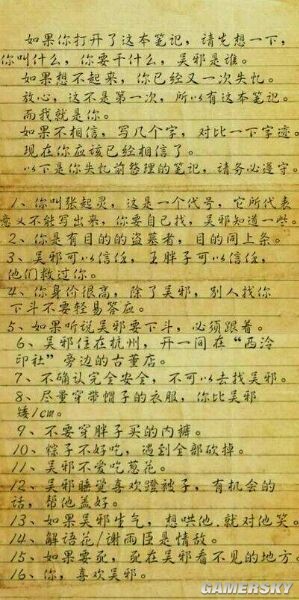 如果你打开了这本笔记，请先想一下，
你叫什么，你要干什么，吴邪是谁。
如果想不起来，你已经又一次失忆。
放心，这不是第一次，所以有这本笔记。
而我就是你。
如果不相信，写几个字，对比一下字迹。
现在你应该已经相信了。
以下是你失忆前整理的笔记，请务必遵守。
1、你叫张起灵，这是一个代号，它所代表
意义不能写出来，你要自己找，吴邪知道一些。
2、你是有目的的盗墓者，目的同上条。
3、吴邪可以信任，王胖子可以信任，
他们救过你。
4、你身价很高，除了吴邪，别人找你
下斗不要轻易答应。
5、如果听说吴邪要下斗，必须跟着。
6、吴邪住在杭州，开一间在“西泠
印社”旁边的古董店。
7、不确认完全安全，不可以去找吴邪。
8、尽量穿带帽子的衣服，你比吴邪
矮1cm。
9、不要穿胖子买的内裤。
10、粽子不好吃，遇到全部砍掉。
11、吴邪不爱吃葱花。
12、吴邪睡觉喜欢蹬被子，有机会的
话，帮他盖好。
13、如果吴邪生气，想哄他，就对他笑。
14、解语花/谢雨臣是情敌。
15、如果要死，死在吴邪看不见的地方。
16、你，喜欢吴邪。
GAMERSKY